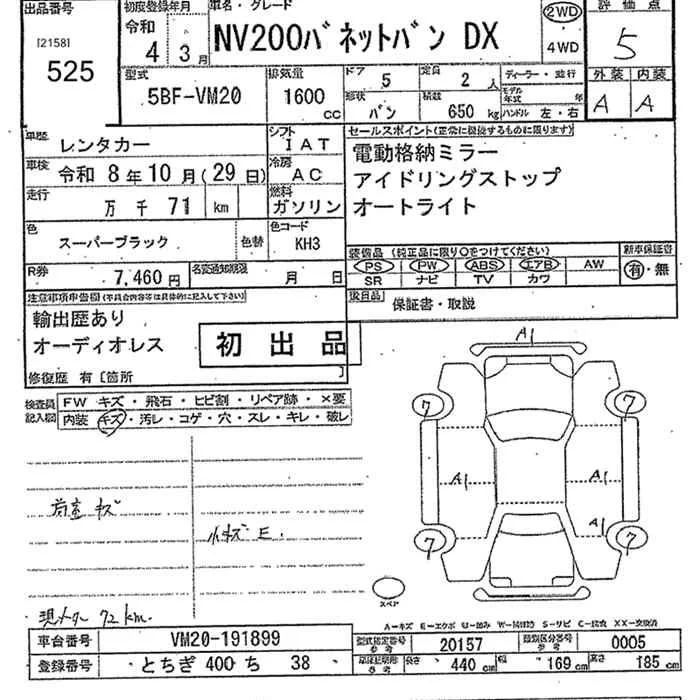 出品番号 初度登録年月 車名・グレード 2WD 評価点
[2158] 令和 4 3月 NV200バネットバン DX 4WD 5
525 型式 排気量 ドア 5 定員 2人 ディーラー・並行 外装 内装
5BF-VM20 1600cc 形状 バン 積数 650kg モデル年式 年 ハンドル 左・右 A A
車歴 レンタカー シフト IAT セールスポイント(正常に機能するものに限ります)
車検 令和 8年10月(29日) 冷房 AC 電動格納ミラー
走行 万 千 71 km 燃料 ガソリン アイドリングストップ
オートライト
色 スーパーブラック 色替 色コード KH3
装備品 (純正品に限り○をつけてください) 新車保証書
R券 7,460円 名変通知期限 月 日 PS PW ABS エアB AW 有・無
SR ナビ TV カワ
注意事項申告欄(不具合内容等は具体的に記入して下さい) 後日品 保証書・取説
輸出歴あり
オーディオレス 初出品
修復歴 有〔箇所 〕
検査員記入欄 FW キズ・飛石・ヒビ割・リペア跡・×要
内装 キズ・汚レ・コゲ・穴・スレ・キレ・破レ
A1
7 7
A1 A1
A1
7 7
荷室 キズ
小キズ E.
スペア
現メーター 72km.
A-キズ E-エクボ U-凹み W-補修跡 S-サビ C-腐食 XX-交換済
車台番号 VM20-191899 型式指定番号 参考 20157 類別区分番号 参考 0005
登録番号 とちぎ 400 ち 38 車検証明形 参考 長さ 440cm 幅 169cm 高さ 185cm